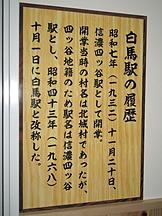 白馬駅の履歴
昭和七年（一九三二）十一月二十日、
信濃四ッ谷駅として開業。
開業当時の村名は北城村であったが、
四ッ谷地籍のため駅名は信濃四ッ谷
駅とし、昭和四十三年（一九六八）
十月一日に白馬駅と改称した。